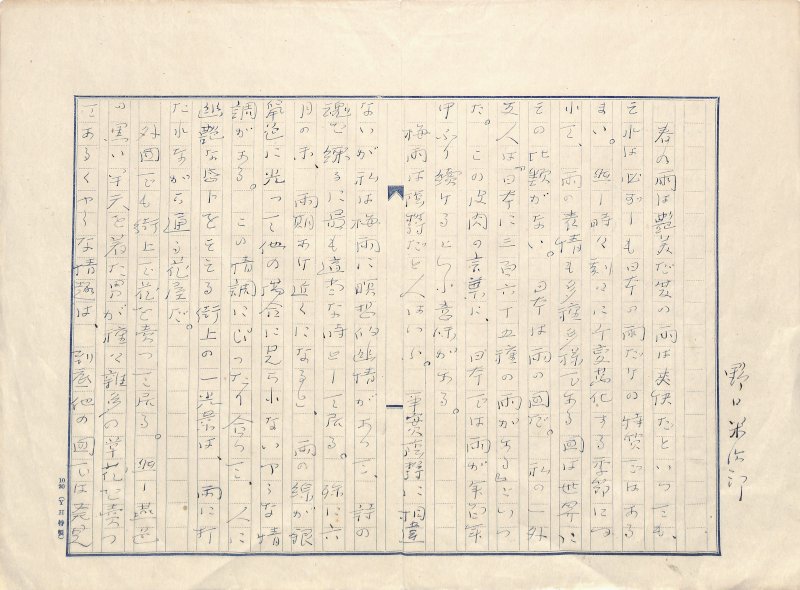 野口米次郎
春の雨は艶美だ夏の雨は爽快だといつても、
それは必ずしも日本の雨だけの特質ではある
まい。然し時々刻々に千変萬化する季節につ
れて、雨の表情も多種多様である国は世界に
その比類がない。日本は雨の国だ。私の一外
友人は『日本に三百六十五種の雨がある』といつ
た。この皮肉の言葉に、日本では雨が年百年
中ふり続けるといふ意味がある。
梅雨は陰欝だと人はいふ。事実陰欝に相違
ないが私は梅雨に瞑想的幽情があつて、詩の
魂を練るに最も適当な時として居る。殊に六
月の末、雨期あけ近くになると、雨の線が銀
箔色に光つて他の場合に見られないやうな情
調がある。この情調にぴつたり合つて、人に
幽艶な思ひをそそる街上の一光景は、雨に打
たれながら通る花屋だ。
外国でも街上で花を売つて居る。然し燕色
の黒い半天を着た男が種々雑多の草花を売つ
てあるくやうな情趣は、到底他の国では発見
10 20 (全目特製)